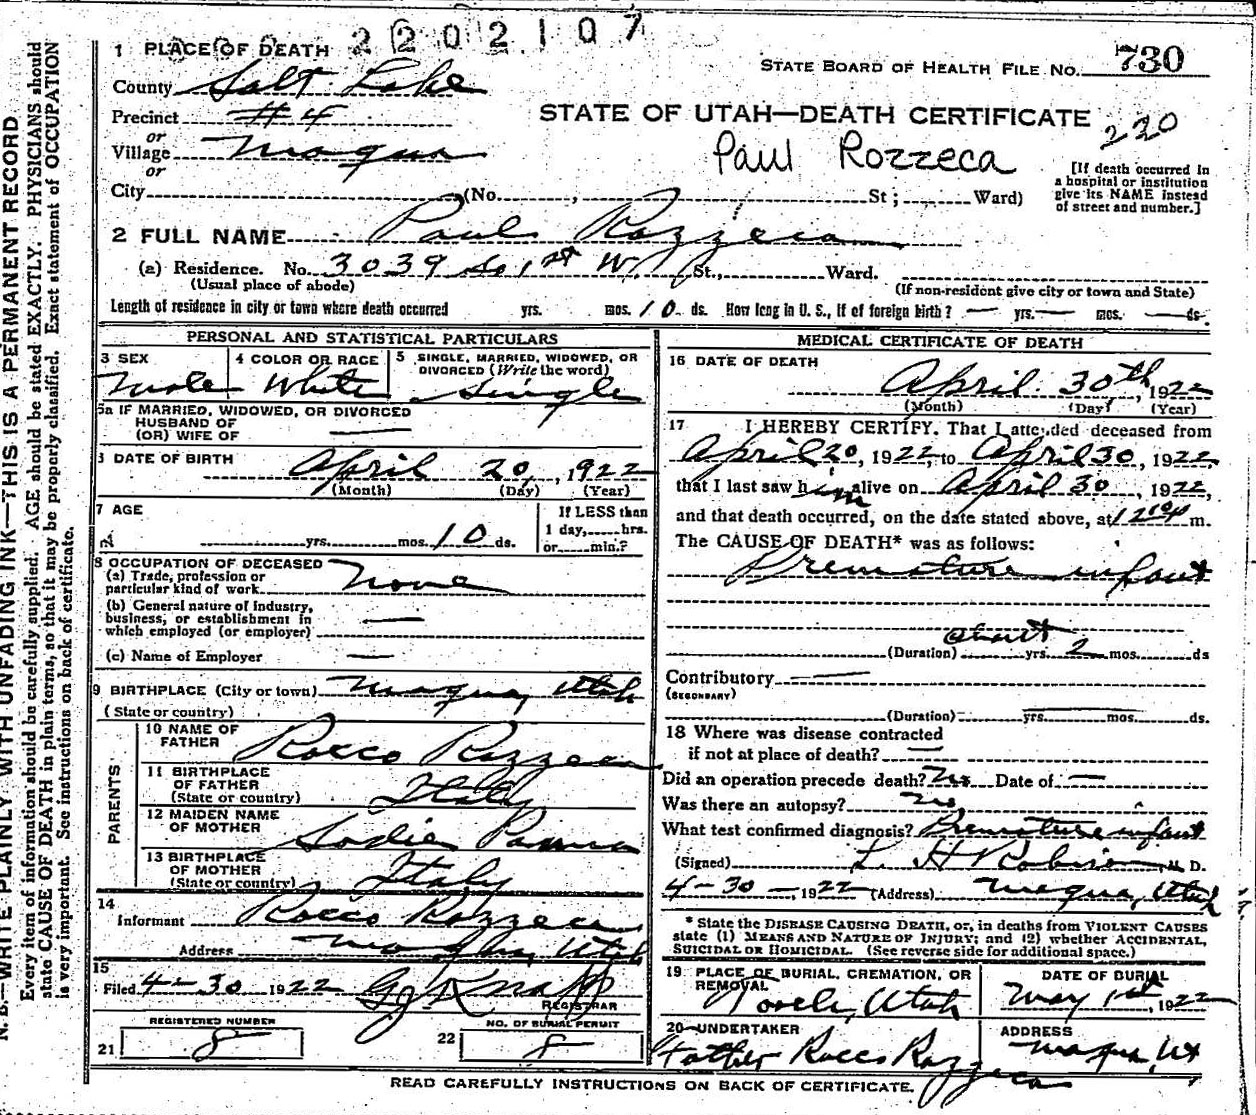 2202107
1 PLACE OF DEATH
STATE BOARD OF HEALTH FILE NO. 730
County Salt Lake
Precinct #4
STATE OF UTAH—DEATH CERTIFICATE
220
or
Village Magna
Paul Rozzeca
or
City (No. , St; Ward)
[If death occurred in a hospital or institution give its NAME instead of street and number.]
2 FULL NAME Paul Rozzeca
(a) Residence. No. 3039 So 1st W St., Ward.
(Usual place of abode)
(If non-resident give city or town and State)
Length of residence in city or town where death occurred yrs. mos. 10 ds. How long in U. S., if of foreign birth? — yrs. — mos. — ds.
PERSONAL AND STATISTICAL PARTICULARS
3 SEX
Male
4 COLOR OR RACE
White
5 SINGLE, MARRIED, WIDOWED, OR DIVORCED (Write the word)
Single
5a IF MARRIED, WIDOWED, OR DIVORCED
HUSBAND OF
(OR) WIFE OF —
DATE OF BIRTH April 20, 1922
(Month) (Day) (Year)
7 AGE
yrs. mos. 10 ds.
If LESS than
1 day, hrs.
or min.?
8 OCCUPATION OF DECEASED
(a) Trade, profession or
particular kind of work None
(b) General nature of industry,
business, or establishment in
which employed (or employer) —
(c) Name of Employer —
9 BIRTHPLACE (City or town) Magna, Utah
(State or country)
PARENTS
10 NAME OF
FATHER Rocco Rozzeca
11 BIRTHPLACE
OF FATHER
(State or country) Italy
12 MAIDEN NAME
OF MOTHER Sadie
13 BIRTHPLACE
OF MOTHER
(State or country) Italy
14
Informant Rocco Rozzeca
Address Magna, Utah
15
Filed 4-30 1922 G J Knapp
REGISTRAR
REGISTERED NUMBER
21 8
NO. OF BURIAL PERMIT
22 8
MEDICAL CERTIFICATE OF DEATH
16 DATE OF DEATH
April 30th, 1922
(Month) (Day) (Year)
17 I HEREBY CERTIFY. That I attended deceased from
April 20, 1922, to April 30, 1922,
that I last saw him alive on April 30, 1922,
and that death occurred, on the date stated above, at m.
The CAUSE OF DEATH* was as follows:
Premature infant
about
(Duration) yrs. 2 mos. ds
Contributory —
(SECONDARY)
(Duration) yrs. mos. ds.
18 Where was disease contracted
if not at place of death? —
Did an operation precede death? No Date of —
Was there an autopsy? No
What test confirmed diagnosis? Premature infant
(Signed) L. H. Robison, M. D.
4-30-, 1922 (Address) Magna, Utah
* State the DISEASE CAUSING DEATH, or, in deaths from VIOLENT CAUSES
state (1) MEANS AND NATURE OF INJURY; and (2) whether ACCIDENTAL,
SUICIDAL OR HOMICIDAL. (See reverse side for additional space.)
19 PLACE OF BURIAL, CREMATION, OR
REMOVAL
Tooele, Utah
DATE OF BURIAL
May 1st, 1922
20 UNDERTAKER
Father Rocco Rozzeca
ADDRESS
Magna, Ut
READ CAREFULLY INSTRUCTIONS ON BACK OF CERTIFICATE.
N. B.—WRITE PLAINLY WITH UNFADING INK—THIS IS A PERMANENT RECORD
Every item of information should be carefully supplied. AGE should be stated EXACTLY. PHYSICIANS should
state CAUSE OF DEATH in plain terms, so that it may be properly classified. Exact statement of OCCUPATION
is very important. See instructions on back of certificate.